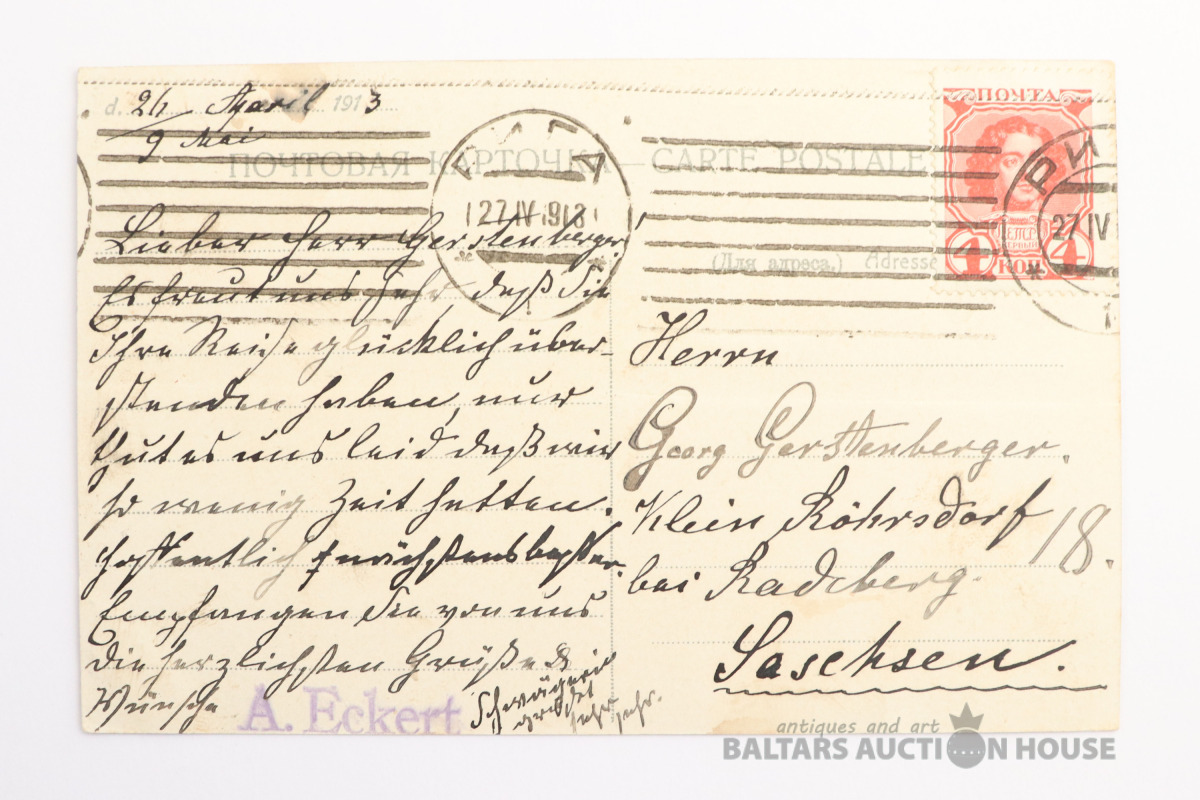 d. 26 April 1913
9 Mai
ПОЧТОВАЯ КАРТОЧКА — CARTE POSTALE
РИГА
27 IV 1913
ПОЧТА
4 КОП 4
РИГ
27 IV
(Для адреса.) Adresse
Lieber Herr Gerstenberger!
Es freut uns sehr daß Sie
Ihre Reise glücklich über-
standen haben, nur
thut es uns leid daß wir
so wenig Zeit hatten.
Hoffentlich nächstens besser.
Empfangen Sie von uns
die herzlichsten Grüße &
Wünsche
A. Eckert
Schwägerin
grüßt
sehr sehr.
Herrn
Georg Gerstenberger.
Klein Röhrsdorf 18.
bei Radeberg.
Sachsen.
antiques and art
BALTARS AUCTION HOUSE